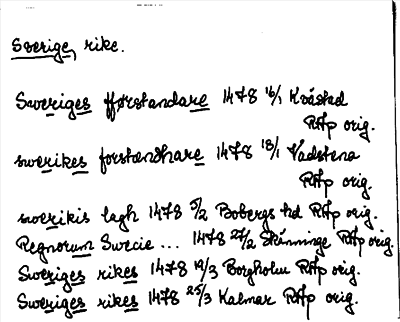 Sverige, rike.
Sweriges fførstandare 1478 16/1 Kvåstad
RAp orig.
swerikes forstandhare 1478 18/1 Vadstena
RAp orig.
swerikis lagh 1478 5/2 Bobergs hd RAp orig.
Regnorum Swecie ... 1478 27/2 Skänninge RAp orig.
Sweriges rikes 1478 14/3 Borgholm RAp orig.
Sweriges rikes 1478 25/3 Kalmar RAp orig.